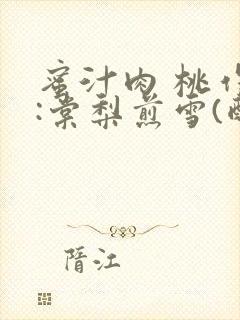 蜜汁肉桃作
:棠梨煎雪(酥
晋江